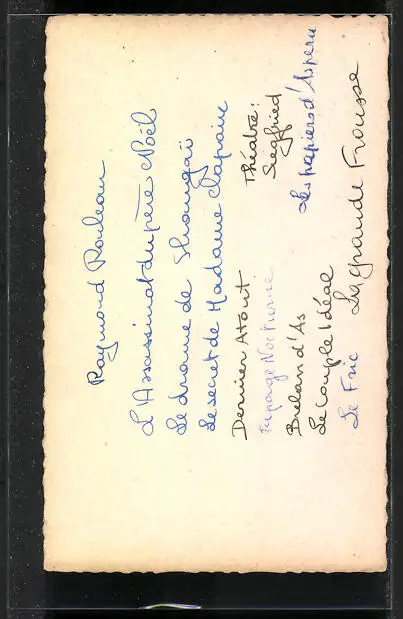 Raymond Rouleau
L'Assassinat du père Noël
Le drame de Shangaï
Le secret de Madame Clapain
Dernier Atout
Tapage Nocturne
Brelan d'As
Le Couple Idéal
Le Fric
Théatre:
Siegfried
Les papiers d'Aspern
La grande Frousse